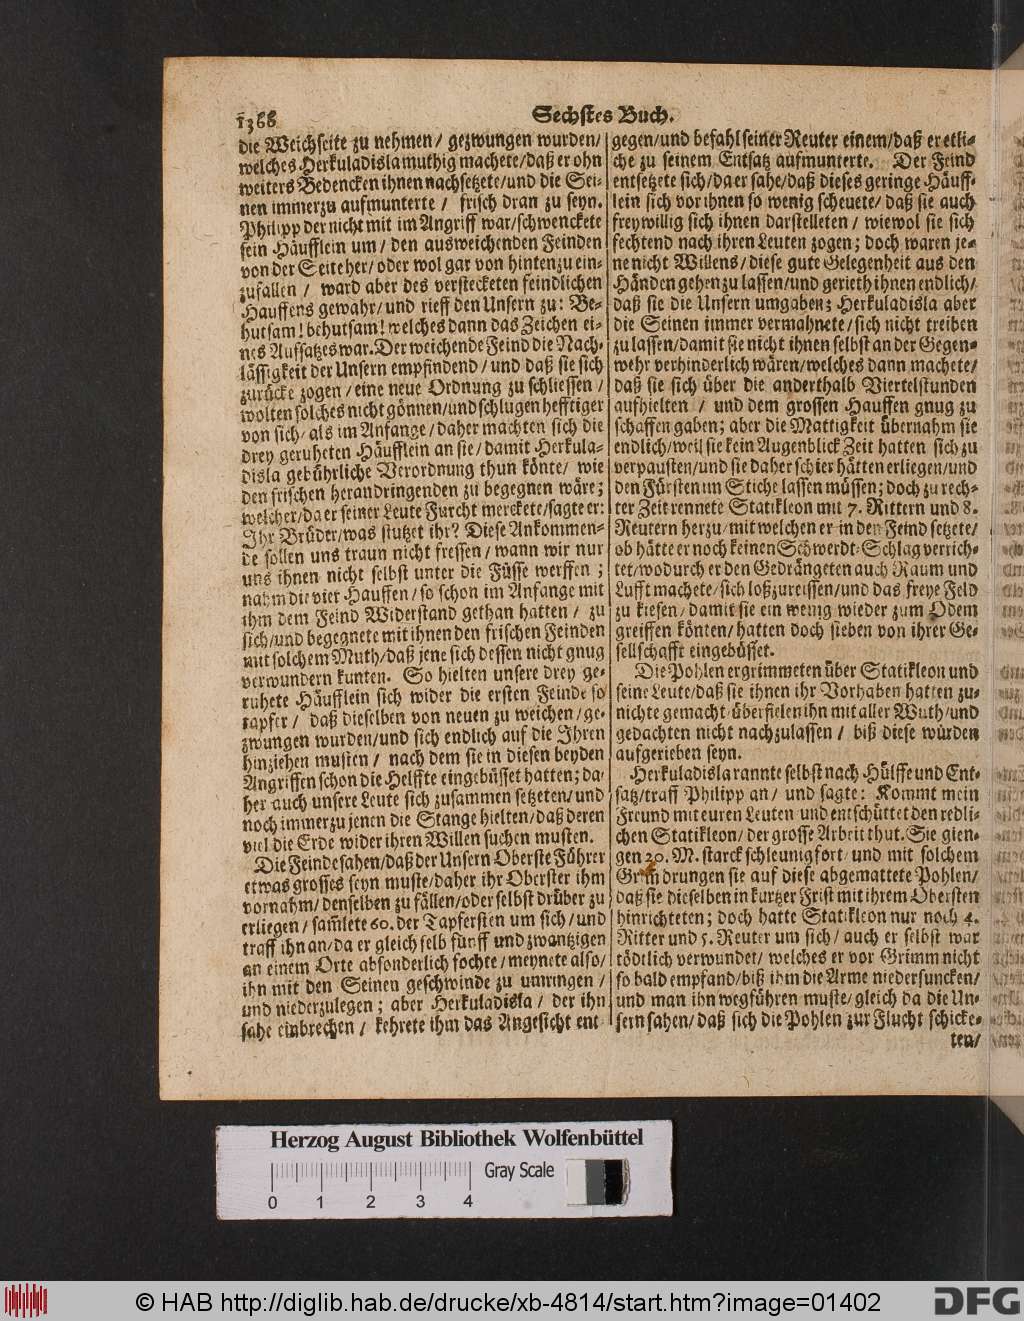 1366
Sechstes Buch.
die Weichseite zu nehmen / gezwungen wurden/
welches Herkuladisla muthig machete/ daß er ohn
weiters Bedencken ihnen nachsetzete/ und die Sei-
nen immerzu aufmunterte / frisch dran zu seyn.
Philipp der nicht mit im Angriff war/ schwenckete
sein Häufflein um/ den ausweichenden Feinden
von der Seite her/ oder wol gar von hinten zu ein-
zufallen / ward aber des versteckteten feindlichen
Hauffens gewahr/ und rieff den Unsern zu: Be-
hutsam! behutsam! welches dann das Zeichen ei-
nes Aufsatzes war. Der weichende Feind die Nach-
lässigkeit der Unsern empfindend / und daß sie sich
zurücke zogen / eine neue Ordnung zu schliessen /
wolten solches nicht gönnen/ und schlugen hefftiger
von sich/ als im Anfange/ daher machten sich die
drey geruheten Häufflein an sie/ damit Herkula-
disla gebührliche Verordnung thun könte/ wie
den frischen herandringenden zu begegnen wäre;
welcher/ da er seiner Leute Furcht merckete/ sagte er:
Ihr Brüder/ was stutzet ihr? Diese Ankommen-
de sollen uns traun nicht fressen/ wann wir nur
uns ihnen nicht selbst unter die Füsse werffen;
nahm die vier Hauffen/ so schon im Anfange mit
ihm dem Feind Widerstand gethan hatten / zu
sich/ und begegnete mit ihnen den frischen Feinden
mit solchem Muth/ daß jene sich dessen nicht gnug
verwundern kunten. So hielten unsere drey ge-
ruhete Häufflein sich wider die ersten Feinde so
tapfer / daß dieselben von neuen zu weichen / ge-
zwungen wurden/ und sich endlich auf die Ihren
hinziehen musten / nach dem sie in diesen beyden
Angriffen schon die Helffte eingebüsset hatten; da-
her auch unsere Leute sich zusammen setzeten/ und
noch immerzu jenen die Stange hielten/ daß deren
viel die Erde wider ihren Willen suchen musten.
Die Feinde sahen/ daß der Unsern Oberste Führer
etwas grosses seyn muste/ daher ihr Oberster ihm
vornahm/ denselben zu fällen/ oder selbst drüber zu
erliegen/ sam̃lete 60. der Tapfersten um sich/ und
traff ihn an/ da er gleich selb fünff und zwantzigen
an einem Orte absonderlich fochte/ meynete also/
ihn mit den Seinen geschwinde zu umringen /
und niederzulegen; aber Herkuladisla/ der ihn
sahe einbrechen / kehrete ihm das Angesicht ent-
gegen/ und befahl seiner Reuter einem/ daß er etli-
che zu seinem Entsatz aufmunterte. Der Feind
entsetzete sich/ da er sahe/ daß dieses geringe Häuff-
lein sich vor ihnen so wenig scheuete/ daß sie auch
freywillig sich ihnen darstelleten/ wiewol sie sich
fechtend nach ihren Leuten zogen; doch waren je-
ne nicht Willens/ diese gute Gelegenheit aus den
Händen gehen zu lassen/ und gerieth ihnen endlich/
daß sie die Unsern umgaben; Herkuladisla aber
die Seinen immer vermahnete/ sich nicht treiben
zu lassen/ damit sie nicht ihnen selbst an der Gegen-
wehr verhinderlich wären/ welches dann machete/
daß sie sich über die anderthalb Viertelstunden
aufhielten / und dem grossen Hauffen gnug zu
schaffen gaben; aber die Mattigkeit übernahm sie
endlich/ weil sie kein Augenblick Zeit hatten sich zu
verpausten/ und sie daher schier hätten erliegen/ und
den Fürsten im Stiche lassen müssen; doch zu rech-
ter Zeit rennete Statikleon mit 7. Rittern und 8.
Reutern herzu/ mit welchen er in den Feind setzete/
ob hätte er noch keinen Schwerdt-Schlag verrich-
tet/ wodurch er den Gedrängeten auch Raum und
Lufft machete/ sich loßzureissen/ und das freye Feld
zu kiesen/ damit sie ein wenig wieder zum Odem
greiffen könten/ hatten doch sieben von ihrer Ge-
sellschafft eingebüsset.
Die Pohlen ergrimmeten über Statikleon und
seine Leute/ daß sie ihnen ihr Vorhaben hatten zu-
nichte gemacht/ überfielen ihn mit aller Wuth/ und
gedachten nicht nachzulassen / biß diese würden
aufgerieben seyn.
Herkuladisla rannte selbst nach Hülffe und Ent-
satz/ traff Philipp an/ und sagte: Kommt mein
Freund mit euren Leuten und entschüttet den redli-
chen Statikleon/ der grosse Arbeit thut. Sie gien-
gen 20. M. starck schleunig fort/ und mit solchem
Grim̃ drungen sie auf diese abgemattete Pohlen/
daß sie dieselben in kurtzer Frist mit ihrem Obersten
hinrichteten; doch hatte Statikleon nur noch 4.
Ritter und 5. Reuter um sich/ auch er selbst war
tödtlich verwundet/ welches er vor Grimm nicht
so bald empfand/ biß ihm die Arme niedersuncken/
und man ihn wegführen muste/ gleich da die Un-
sern sahen/ daß sich die Pohlen zur Flucht schicke-
ten/
Herzog August Bibliothek Wolfenbüttel
Gray Scale
0 1 2 3 4
© HAB http://diglib.hab.de/drucke/xb-4814/start.htm?image=01402
DFG